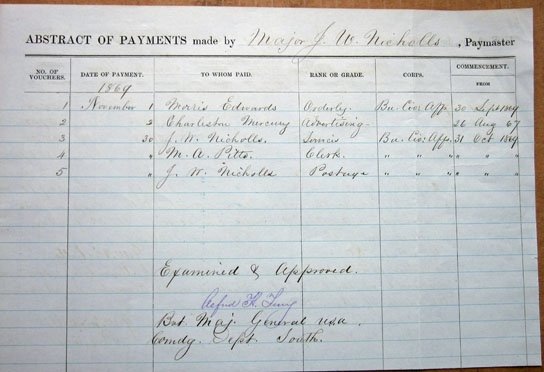 ABSTRACT OF PAYMENTS made by Major J. W. Nicholls, Paymaster
NO. OF VOUCHERS. DATE OF PAYMENT. TO WHOM PAID. RANK OR GRADE. CORPS. COMMENCEMENT.
FROM
1869
1 November 1 Morris Edwards Orderly Bu. Civ. Affs. 30 Sept 1869
2 2 Charleston Mercury Advertising 26 Aug 67
3 30 J. W. Nicholls. Services Bu. Civ. Affs. 31 Oct 1869
4 " M. A. Pitts. Clerk. " " " " " "
5 " J. W. Nicholls Postage " " " " " "
Examined & Approved.
Alfred H. Terry
Bvt. Maj. General USA.
Comdg. Dept. South.